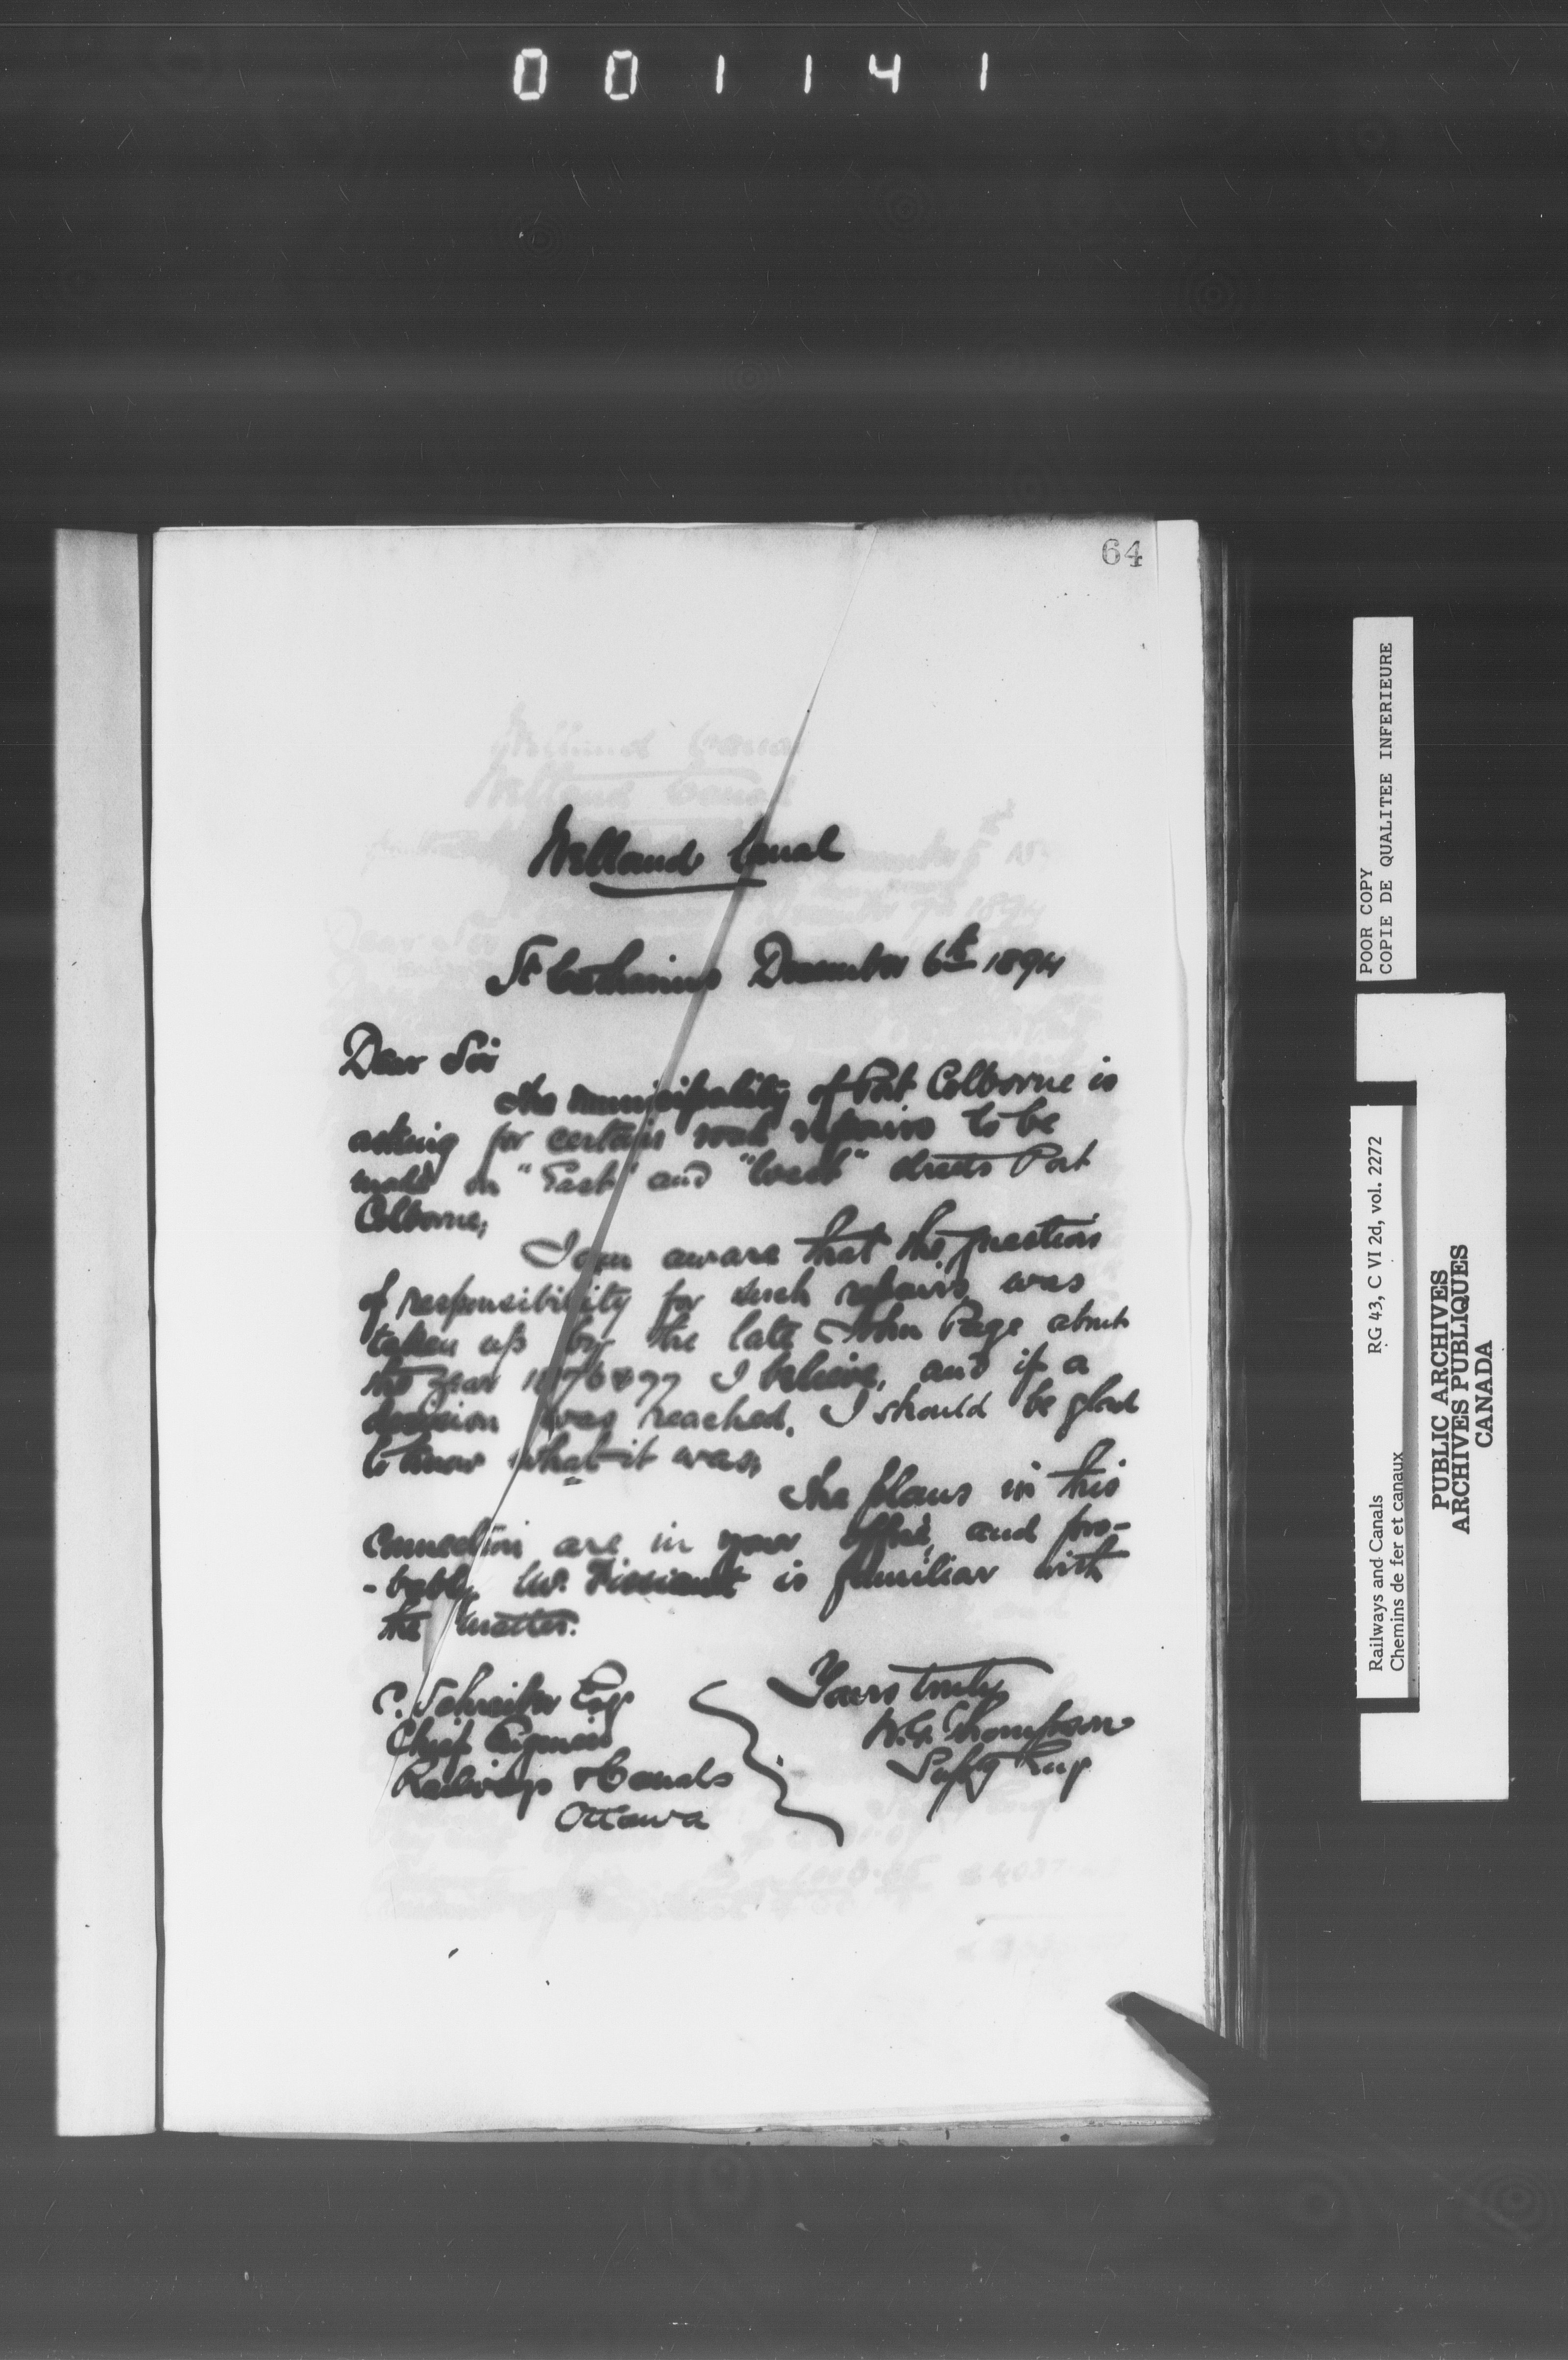 001141
64
Welland Canal
St Catharines December 6th 1894
Dear Sir
The municipality of Port Colborne is
asking for certain road repairs to be
made on "East" and "West" streets Port
Colborne,
I am aware that the question
of responsibility for such repairs was
taken up by the late John Page about
the year 1876 & 77 I believe, and if a
decision was reached, I should be glad
to know what it was,
The plans in this
connection are in your office, and pro-
-bably Mr. is familiar with
the matter.
Yours truly
W.G. Thompson
Suptg Eng
C. Schreiber Esq
Chief Engineer
Railways & Canals
Ottawa
POOR COPY
COPIE DE QUALITEE INFERIEURE
Railways and Canals RG 43, C VI 2d, vol. 2272
Chemins de fer et canaux
PUBLIC ARCHIVES
ARCHIVES PUBLIQUES
CANADA